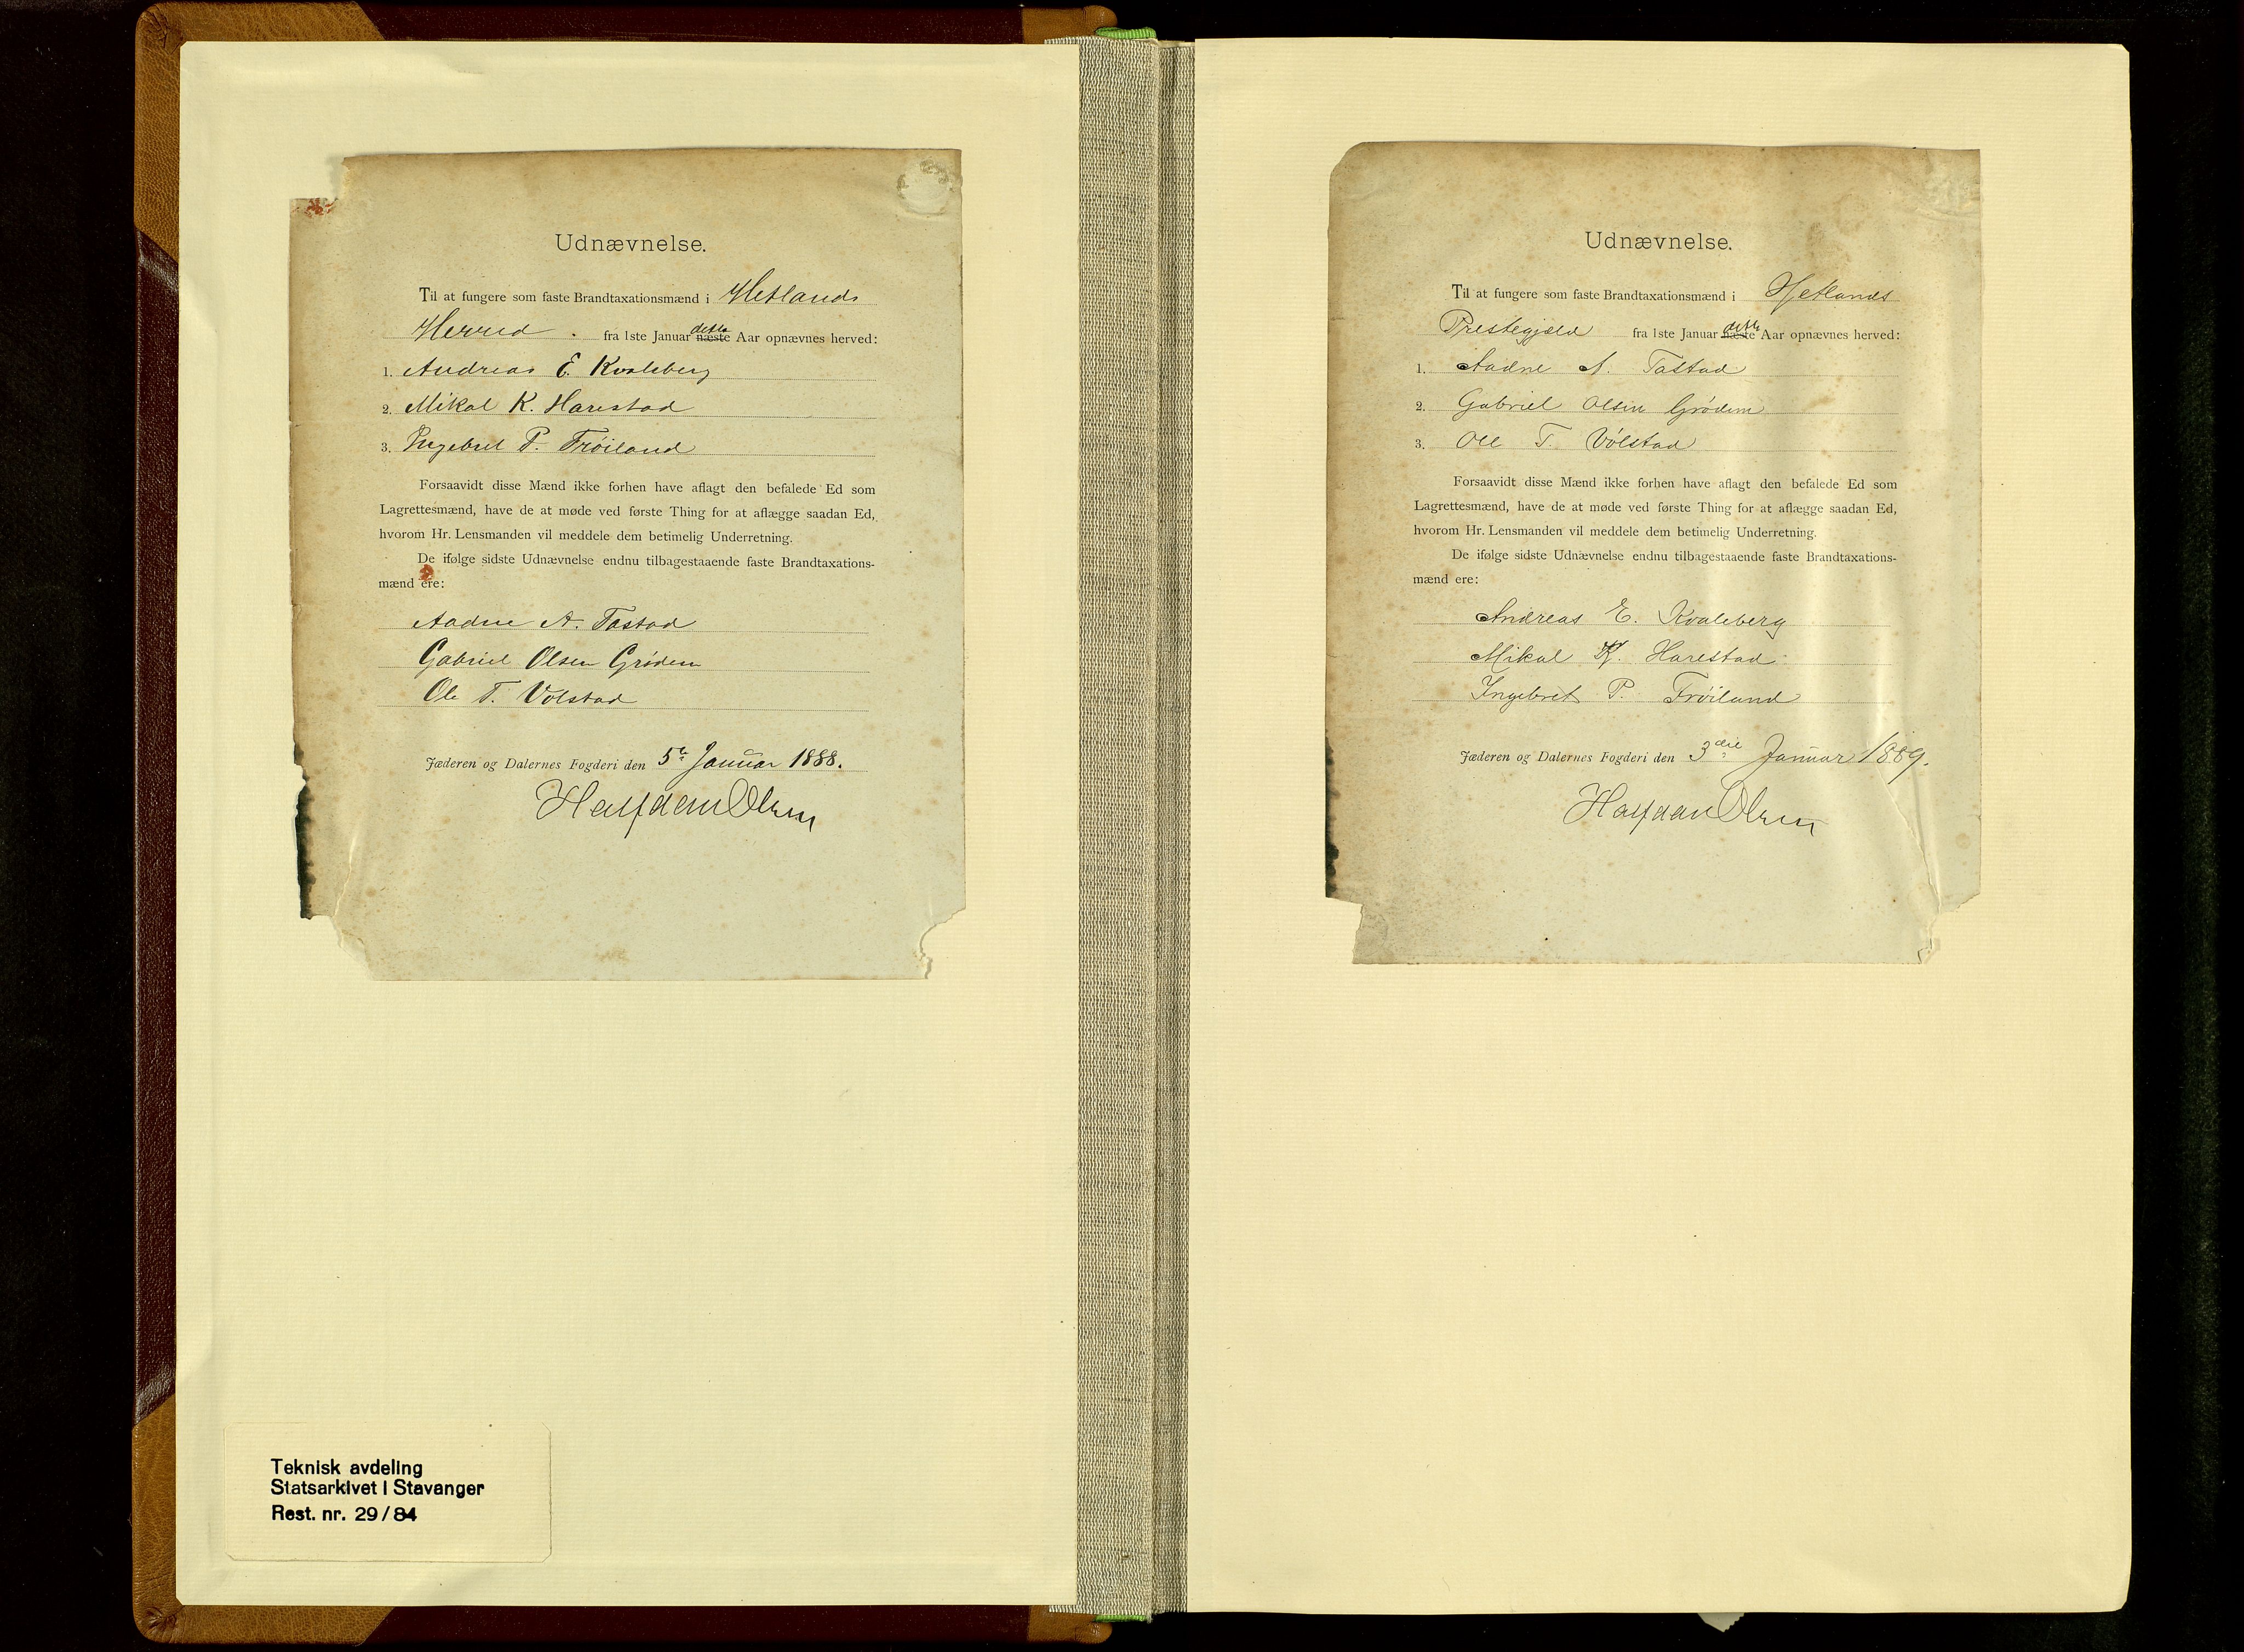 Udnævnelse.
Til at fungere som faste Brandtaxationsmænd i Hetlands
Herred . fra 1ste Januar næste dette Aar opnævnes herved:
1. Andreas E. Kvaleberg
2. Mikal K. Harestad
3. Ingebret P. Frøiland
Forsaavidt disse Mænd ikke forhen have aflagt den befalede Ed som
Lagrettesmænd, have de at møde ved første Thing for at aflægge saadan Ed,
hvorom Hr. Lensmanden vil meddele dem betimelig Underretning.
De ifølge sidste Udnævnelse endnu tilbagestaaende faste Brandtaxations-
mænd ere:
Aadne A. Tastad
Gabriel Olsen Grødem
Ole T. Volstad
Jæderen og Dalernes Fogderi den 5te Januar 1888.
Halfdan Olsen
Teknisk avdeling
Statsarkivet i Stavanger
Rest. nr. 29/84
Udnævnelse.
Til at fungere som faste Brandtaxationsmænd i Hetlands
Prestegjæld fra 1ste Januar næste dette Aar opnævnes herved:
1. Aadne A. Tastad
2. Gabriel Olsen Grødem
3. Ole T. Volstad
Forsaavidt disse Mænd ikke forhen have aflagt den befalede Ed som
Lagrettesmænd, have de at møde ved første Thing for at aflægge saadan Ed,
hvorom Hr. Lensmanden vil meddele dem betimelig Underretning.
De ifølge sidste Udnævnelse endnu tilbagestaaende faste Brandtaxations-
mænd ere:
Andreas E. Kvaleberg
Mikal K. Harestad
Ingebret P. Frøiland
Jæderen og Dalernes Fogderi den 3die Januar 1889.
Halfdan Olsen